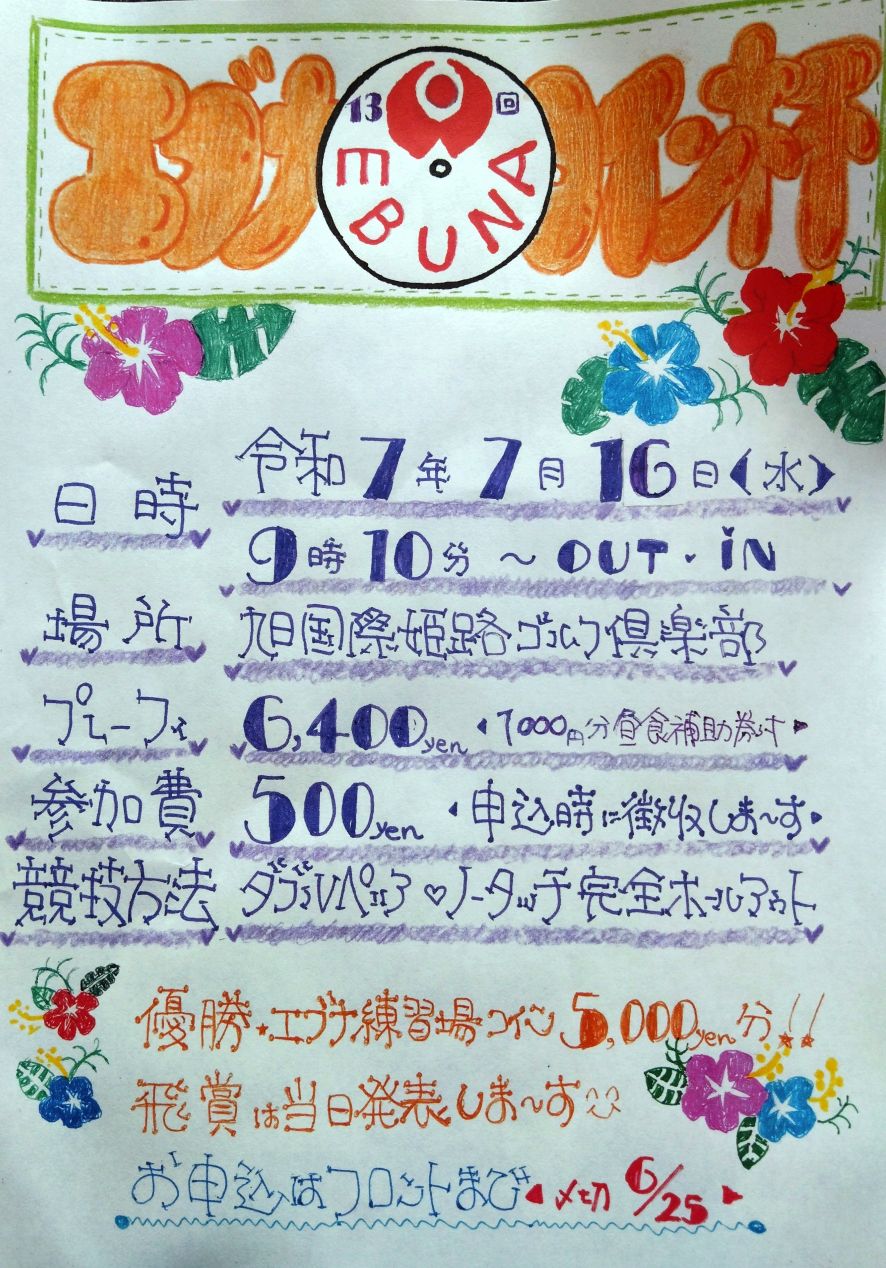 エブナ コイン杯
13回
EBUNA
日時 令和7年7月16日(水)
9時10分〜OUT・IN
場所 旭国際姫路ゴルフ倶楽部
プレーフィ 6,400yen 1000円分昼食補助券付
参加費 500yen 申込時に徴収しま〜す
競技方法 ダブルペリア♡ノータッチ完全ホールアウト
優勝★エブナ練習場コイン5,000yen分!!
飛賞は当日発表しま〜す
お申込はフロントまで 〆切 6/25